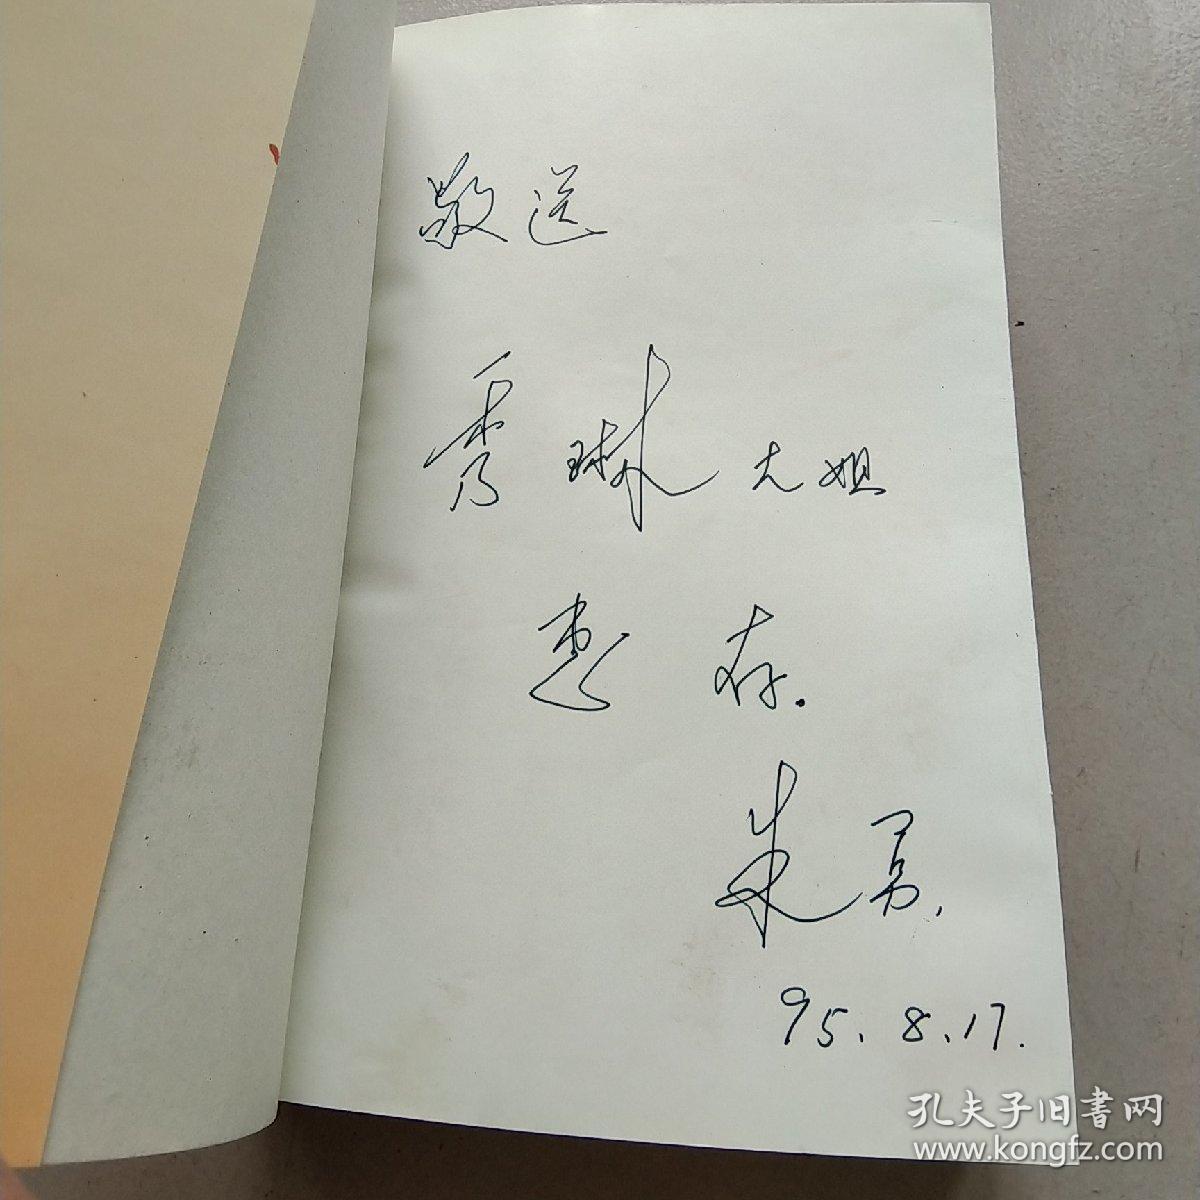 敬送
秀琳大姐
惠存.
朱勇.
95.8.17.
孔夫子旧書网
www.kongfz.com